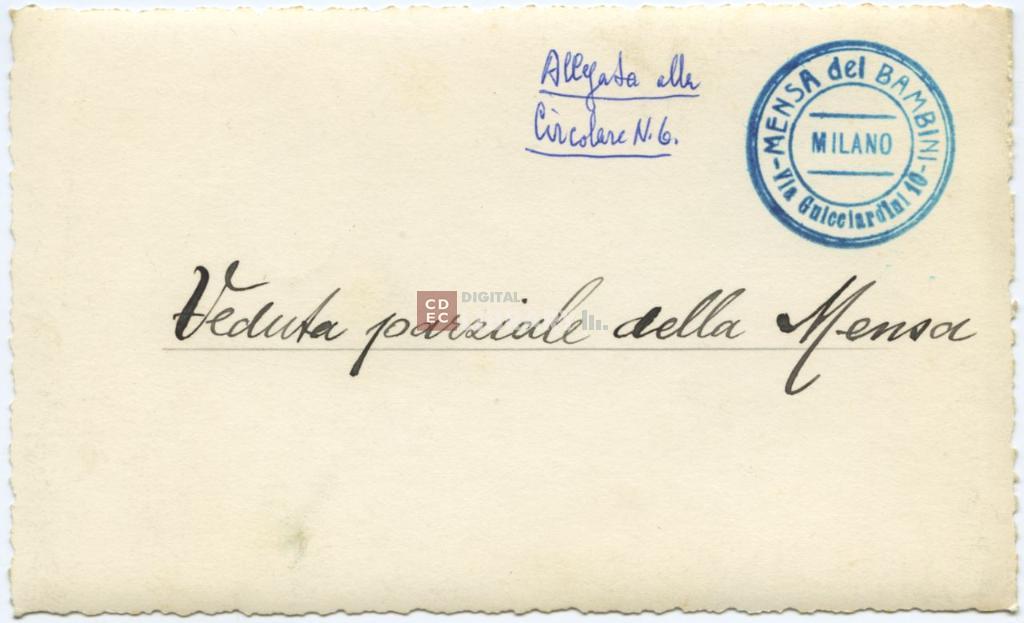 Allegata alla
Circolare N. 6.
MENSA del BAMBINI
MILANO
Via Guicciardini 10
Veduta parziale della Mensa
CD
EC
DIGITAL